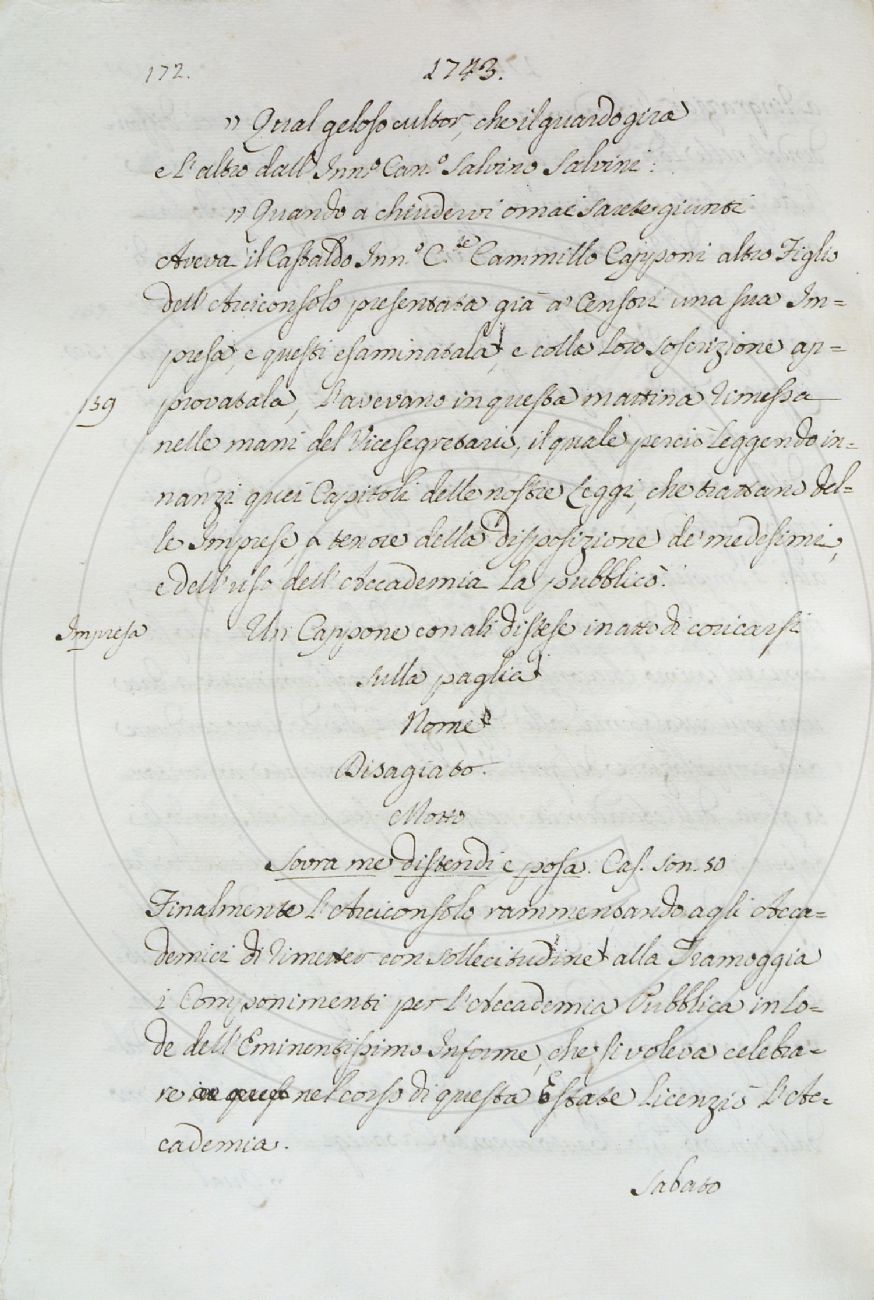 172.
1743.
" Qual geloso cultor, che il guardo gira
e l'altro dall'Inn.º Can.º Salvino Salvini:
" Quando a chiudervi omai sarete giunti
Aveva il Castaldo Inn.º C.te Cammillo Capponi altro Figlio
dell'Arciconsolo presentata già a' Censori una sua Im=
presa, e questi esaminatala, e colla loro soscrizione ap=
159
provatala, l'avevano in questa mattina rimessa
nelle mani del Vicesegretario, il quale perciò leggendo in=
nanzi quei Capitoli delle nostre Leggi, che trattano del=
le Imprese, a tenore della disposizione de' medesimi,
e dell'uso dell'Accademia la pubblicò.
Impresa
Un Cappone con ali distese in atto di coricarsi
sulla paglia
Nome
Disagiato.
Motto
Sovra me distendi e posa. Cas. Son. 50
Finalmente l'Arciconsolo rammentando agli Acca=
demici di rimetter con sollecitudine alla Tramoggia
i Componimenti per l'Accademia Pubblica in lo=
de dell'Eminentissimo Informe, che si voleva celebra=
re nel corso di questa Estate licenziò l'Ac=
cademia.
Sabato